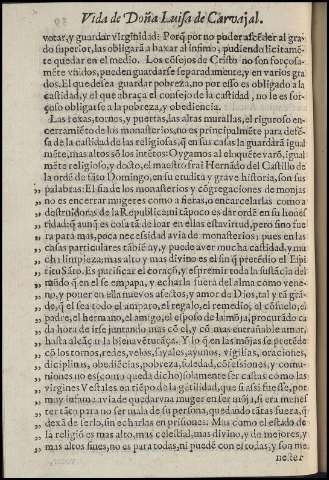 Vida de Doña Luisa de Carvajal.
votar, y guardar virginidad: Porq̃ por no poder ascẽder al gra-
do superior, las obligarã a baxar al infimo, pudiendo licitamẽ-
te quedar en el medio. Los cõsejos de Cristo no son forçosa-
mẽte vnidos, pueden guardarse separadamente, y en varios gra
dos. El que desea guardar pobreza, no por esso es obligado a la
castidad, y el que abraça el consejo de la castidad, no le es for-
çoso obligarse a la pobreza, y obediencia.
Las rexas, tornos, y puertas, las altas murallas, el riguroso en-
cerramiẽto de los monasterios, no es principalmẽte para defẽ-
sa de la castidad de las religiosas, q̃ en sus casas la guardarã igual
mẽte, mas altos sõ los intẽtos: Oygamos al eloquẽte varõ, igual
mẽte religioso, y docto, el maestro frai Hernãdo del Castillo de
la ordẽ de sãto Domingo, en su erudita y grave historia, son sus
palabras: El fin de los monasterios y cõgregaciones de monjas
no es encerrar mugeres como a fieras, o encarcelarlas como a
destruidoras de la Republica; ni tãpoco es dar ordẽ en su hones
tidad (q̃ aunq̃ es cosa tã de loar en ellas) estavirtud, pero sino fue
ra para mas, poca necessidad avia de monasterios; pues en las
casas particulares tãbiẽ ay, y puede aver mucha castidad, y mu
cha limpieza; mas alto y mas divino es el sin q̃ pretẽdio el Espi
ritu Sãto. Es purificar el coraçõ, y espremir toda la sustãcia del
mũdo q̃ en el se empapa, y echarla fuera del alma como vene-
no, y poner en ella nuevos afectos, y amor de Dios, tal y tã grã-
de, q̃ el sea todo el amparo, el regalo, el remedio, el cõsuelo, el
padre, el hermano, el amigo, el esposo de la mõja, procurãdo ca
da hora de irse juntando mas cõ el, y cõ mas entrañable amor,
hasta alcãçar la bienavẽturãça. Y lo q̃ en las mõjas se pretẽde
cõ los tornos, redes, velas, sayales, ayunos, vigilias, oraciones,
diciplinas, obediẽcias, pobreza, soledad, cõfessiones, y comu-
niones no es (como queda dicho) solamente ser castas como las
virgines Vestales en tiẽpo de la gẽtilidad, que si assi fuesse, por
muy infame avia de quedar vna muger en ser mõja, si era menes
ter tãto para no ser mala de su persona, quedando tãtas fuera, q̃
dexã de serlo, sin echarlas en prisiones. Mas como el estado de
la religiõ es mas alto, mas celestial, mas divino, y de mejores, y
mas altos fines, no es para todas, ni puede con el todas, y son me
nester